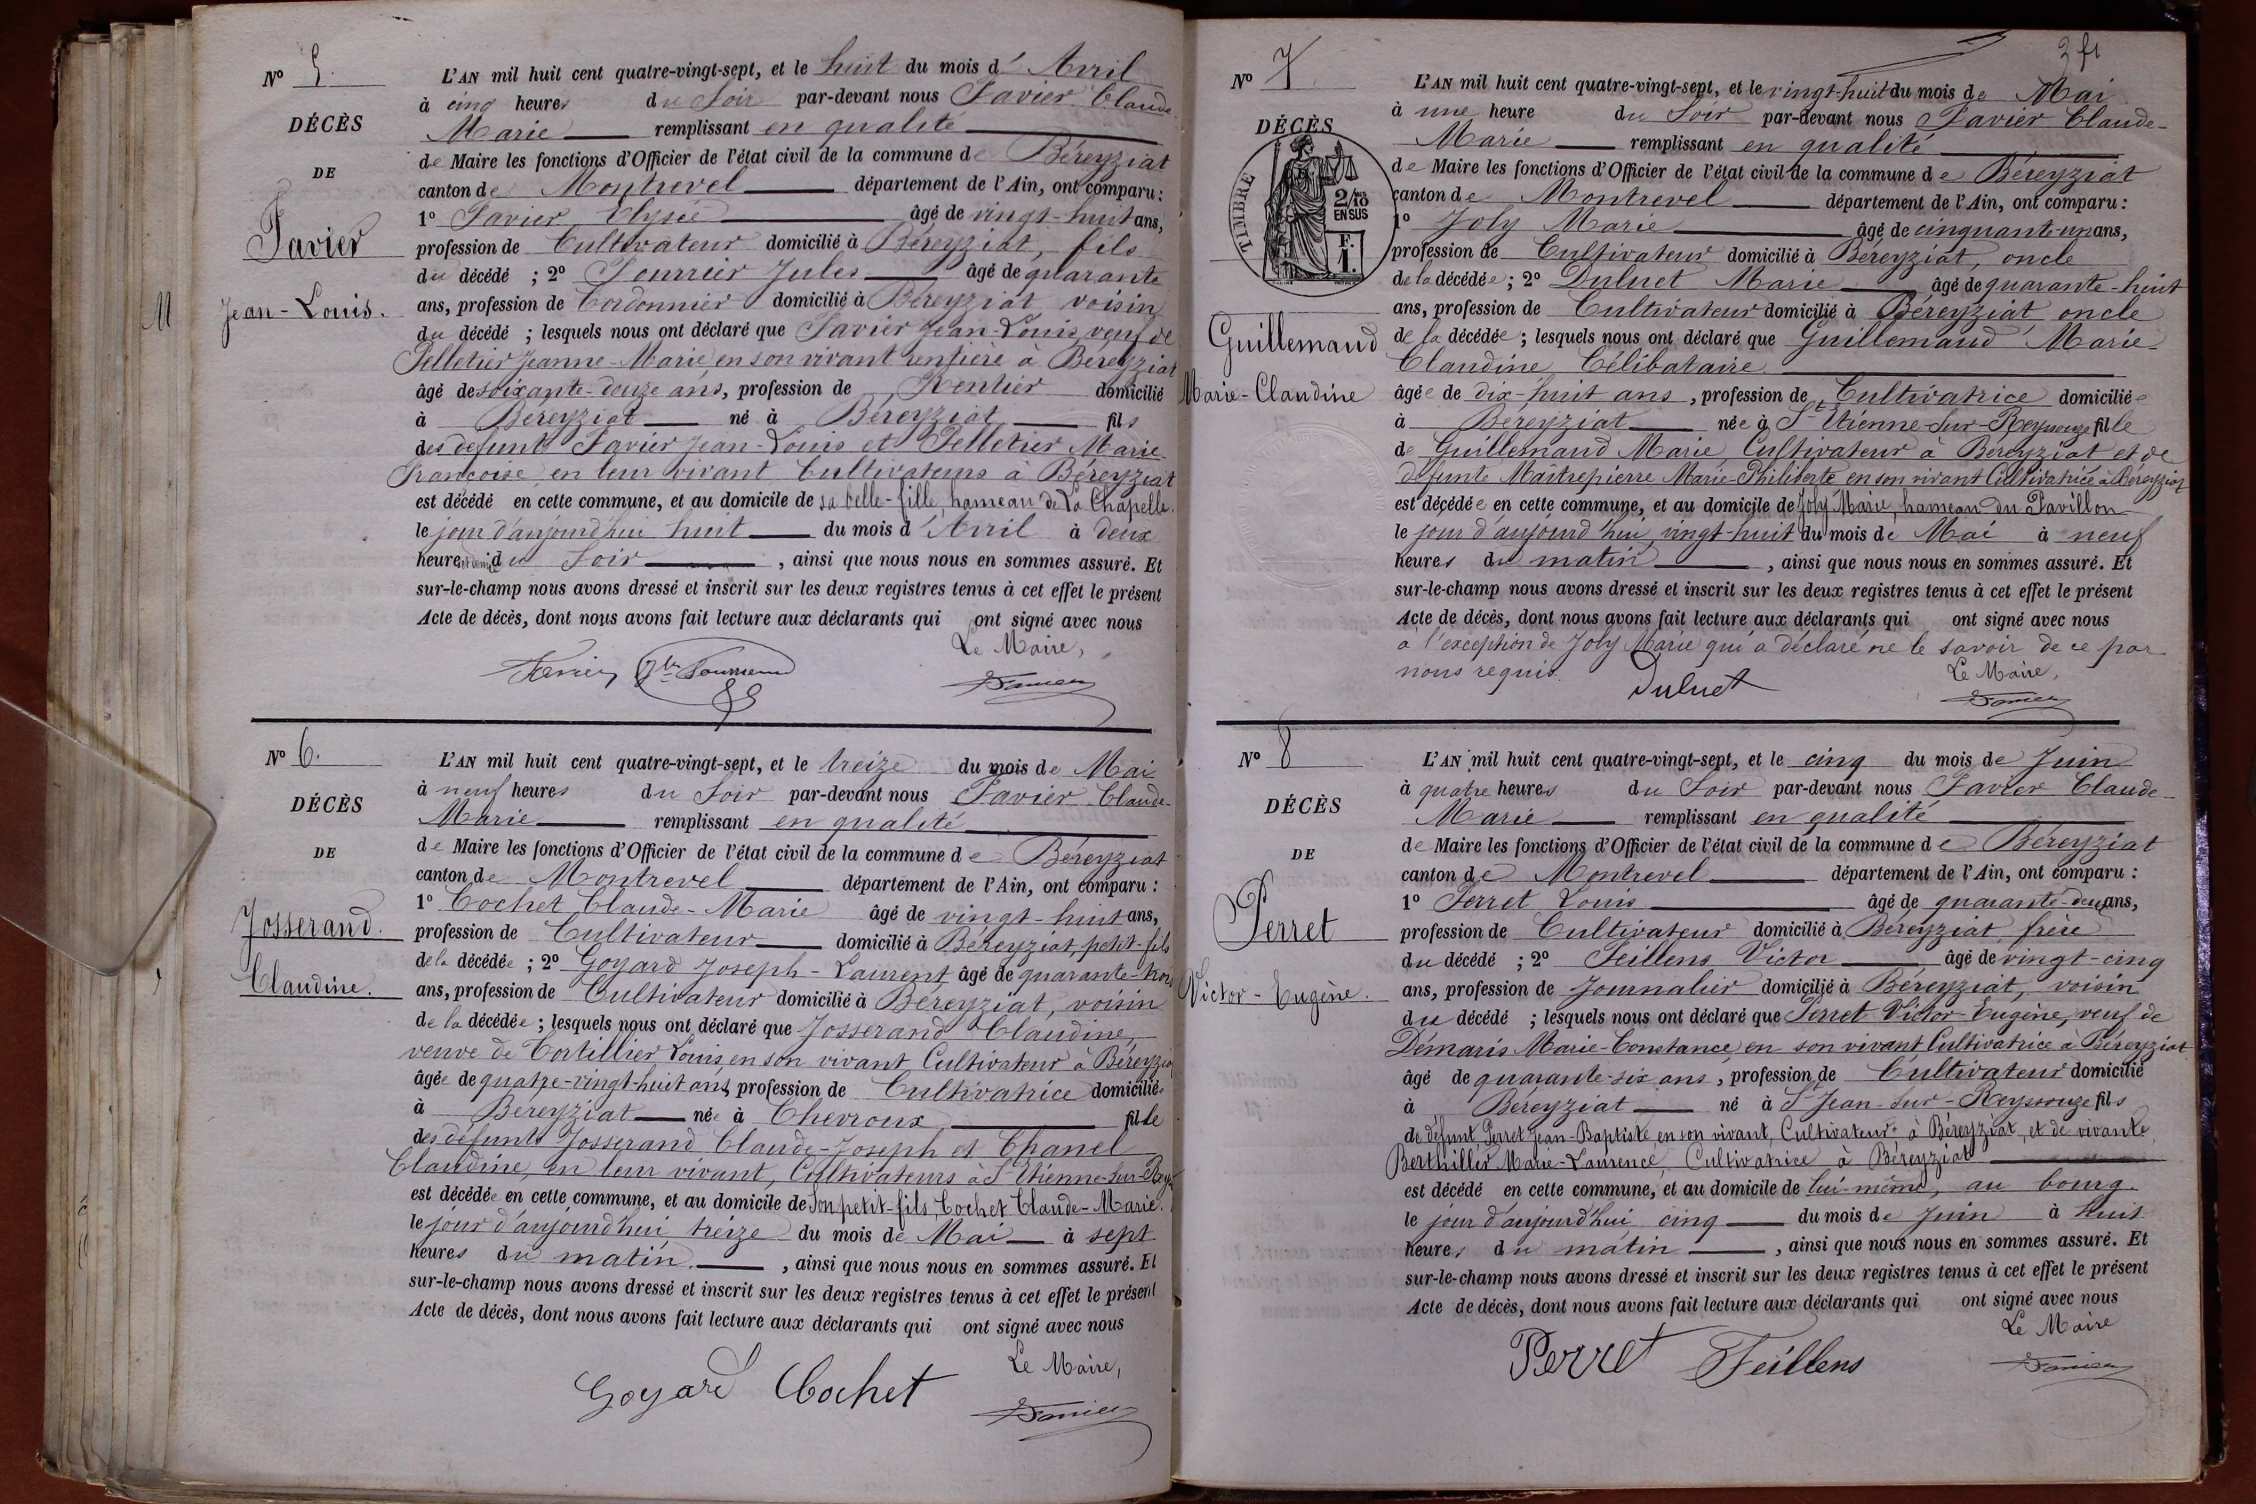 Nº 5.
DÉCÈS
DE
Favier
Jean-Louis.
M
L'AN mil huit cent quatre-vingt-sept, et le huit du mois d'Avril
à cinq heures du Soir par-devant nous Favier Claude-
Marie remplissant en qualité
de Maire les fonctions d'Officier de l'état civil de la commune de Béreyziat
canton de Montrevel département de l'Ain, ont comparu :
1º Favier Elysée âgé de vingt-huit ans,
profession de Cultivateur domicilié à Béreyziat, fils
du décédé ; 2º Fourrier Jules âgé de quarante
ans, profession de Cordonnier domicilié à Béreyziat voisin
du décédé ; lesquels nous ont déclaré que Favier Jean-Louis, veuf de
Pelletier Jeanne-Marie en son vivant rentière à Béreyziat
âgé de soixante-douze ans, profession de Rentier domicilié
à Béreyziat né à Béreyziat fils
des défunts Favier Jean-Louis et Pelletier Marie-
Françoise, en leur vivant Cultivateurs à Béreyziat
est décédé en cette commune, et au domicile de sa belle-fille, hameau de la Chapelle.
le jour d'aujourd'hui huit du mois d'Avril à deux
heures et demie du Soir , ainsi que nous nous en sommes assuré. Et
sur-le-champ nous avons dressé et inscrit sur les deux registres tenus à cet effet le présent
Acte de décès, dont nous avons fait lecture aux déclarants qui ont signé avec nous
Le Maire,
Favier
Nº 6.
DÉCÈS
DE
Josserand.
Claudine.
L'AN mil huit cent quatre-vingt-sept, et le treize du mois de Mai
à neuf heures du Soir par-devant nous Favier Claude-
Marie remplissant en qualité
de Maire les fonctions d'Officier de l'état civil de la commune de Béreyziat
canton de Montrevel département de l'Ain, ont comparu :
1º Cochet Claude-Marie âgé de vingt-huit ans,
profession de Cultivateur domicilié à Béreyziat, petit-fils
de la décédée ; 2º Goyard Joseph-Laurent âgé de quarante-trois
ans, profession de Cultivateur domicilié à Béreyziat, voisin
de la décédée ; lesquels nous ont déclaré que Josserand Claudine,
veuve de Cortillier Louis, en son vivant Cultivateur à Béreyziat
âgée de quatre-vingt-huit ans, profession de Cultivatrice domiciliée
à Béreyziat née à Chevroux fille
des défunts Josserand Claude-Joseph et Chanel
Claudine, en leur vivant, Cultivateurs à St Etienne-sur-Reyss
est décédée en cette commune, et au domicile de son petit-fils, Cochet Claude-Marie.
le jour d'aujourd'hui treize du mois de Mai à sept
heures du matin. , ainsi que nous nous en sommes assuré. Et
sur-le-champ nous avons dressé et inscrit sur les deux registres tenus à cet effet le présent
Acte de décès, dont nous avons fait lecture aux déclarants qui ont signé avec nous
Le Maire,
Goyard Cochet Favier
3 ft
Nº 7.
DÉCÈS
TIMBRE
2/10
EN SUS
F.
1.
Guillemaud
Marie-Claudine
L'AN mil huit cent quatre-vingt-sept, et le vingt-huit du mois de Mai
à une heure du Soir par-devant nous Favier Claude-
Marie remplissant en qualité
de Maire les fonctions d'Officier de l'état civil de la commune de Béreyziat
canton de Montrevel département de l'Ain, ont comparu :
1º Joly Marie âgé de cinquante-un ans,
profession de Cultivateur domicilié à Béreyziat, oncle
de la décédée ; 2º Duluet Marie âgé de quarante-huit
ans, profession de Cultivateur domicilié à Béreyziat oncle
de la décédée ; lesquels nous ont déclaré que Guillemaud Marie-
Claudine, Célibataire
âgée de dix-huit ans , profession de Cultivatrice domiciliée
à Béreyziat née à St Etienne-sur-Reyssouze fille
de Guillemaud Marie, Cultivateur à Béreyziat et de
défunte Maitrepierre Marie-Philiberte en son vivant Cultivatrice à Béreyziat
est décédée en cette commune, et au domicile de Joly Marie, hameau du Pavillon
le jour d'aujourd'hui vingt-huit du mois de Mai à neuf
heures du matin , ainsi que nous nous en sommes assuré. Et
sur-le-champ nous avons dressé et inscrit sur les deux registres tenus à cet effet le présent
Acte de décès, dont nous avons fait lecture aux déclarants qui ont signé avec nous
à l'exception de Joly Marie qui a déclaré ne le savoir de ce par
nous requis. Le Maire,
Duluet Favier
Nº 8
DÉCÈS
DE
Perret
Victor-Eugène.
L'AN mil huit cent quatre-vingt-sept, et le cinq du mois de Juin
à quatre heures du Soir par-devant nous Favier Claude-
Marie remplissant en qualité
de Maire les fonctions d'Officier de l'état civil de la commune de Béreyziat
canton de Montrevel département de l'Ain, ont comparu :
1º Perret Louis âgé de quarante-deux ans,
profession de Cultivateur domicilié à Béreyziat, frère
du décédé ; 2º Feillens Victor âgé de vingt-cinq
ans, profession de Journalier domicilié à Béreyziat, voisin
du décédé ; lesquels nous ont déclaré que Perret Victor-Eugène, veuf de
Démaris Marie-Constance en son vivant Cultivatrice à Béreyziat
âgé de quarante-six ans , profession de Cultivateur domicilié
à Béreyziat né à St Jean-sur-Reyssouze fils
de défunt Perret Jean-Baptiste en son vivant, Cultivateur à Béreyziat, et de vivante,
Berthillier Marie-Laurence, Cultivatrice à Béreyziat
est décédé en cette commune, et au domicile de lui-même, au bourg.
le jour d'aujourd'hui cinq du mois de Juin à huit
heures du matin , ainsi que nous nous en sommes assuré. Et
sur-le-champ nous avons dressé et inscrit sur les deux registres tenus à cet effet le présent
Acte de décès, dont nous avons fait lecture aux déclarants qui ont signé avec nous
Le Maire
Perret Feillens Favier